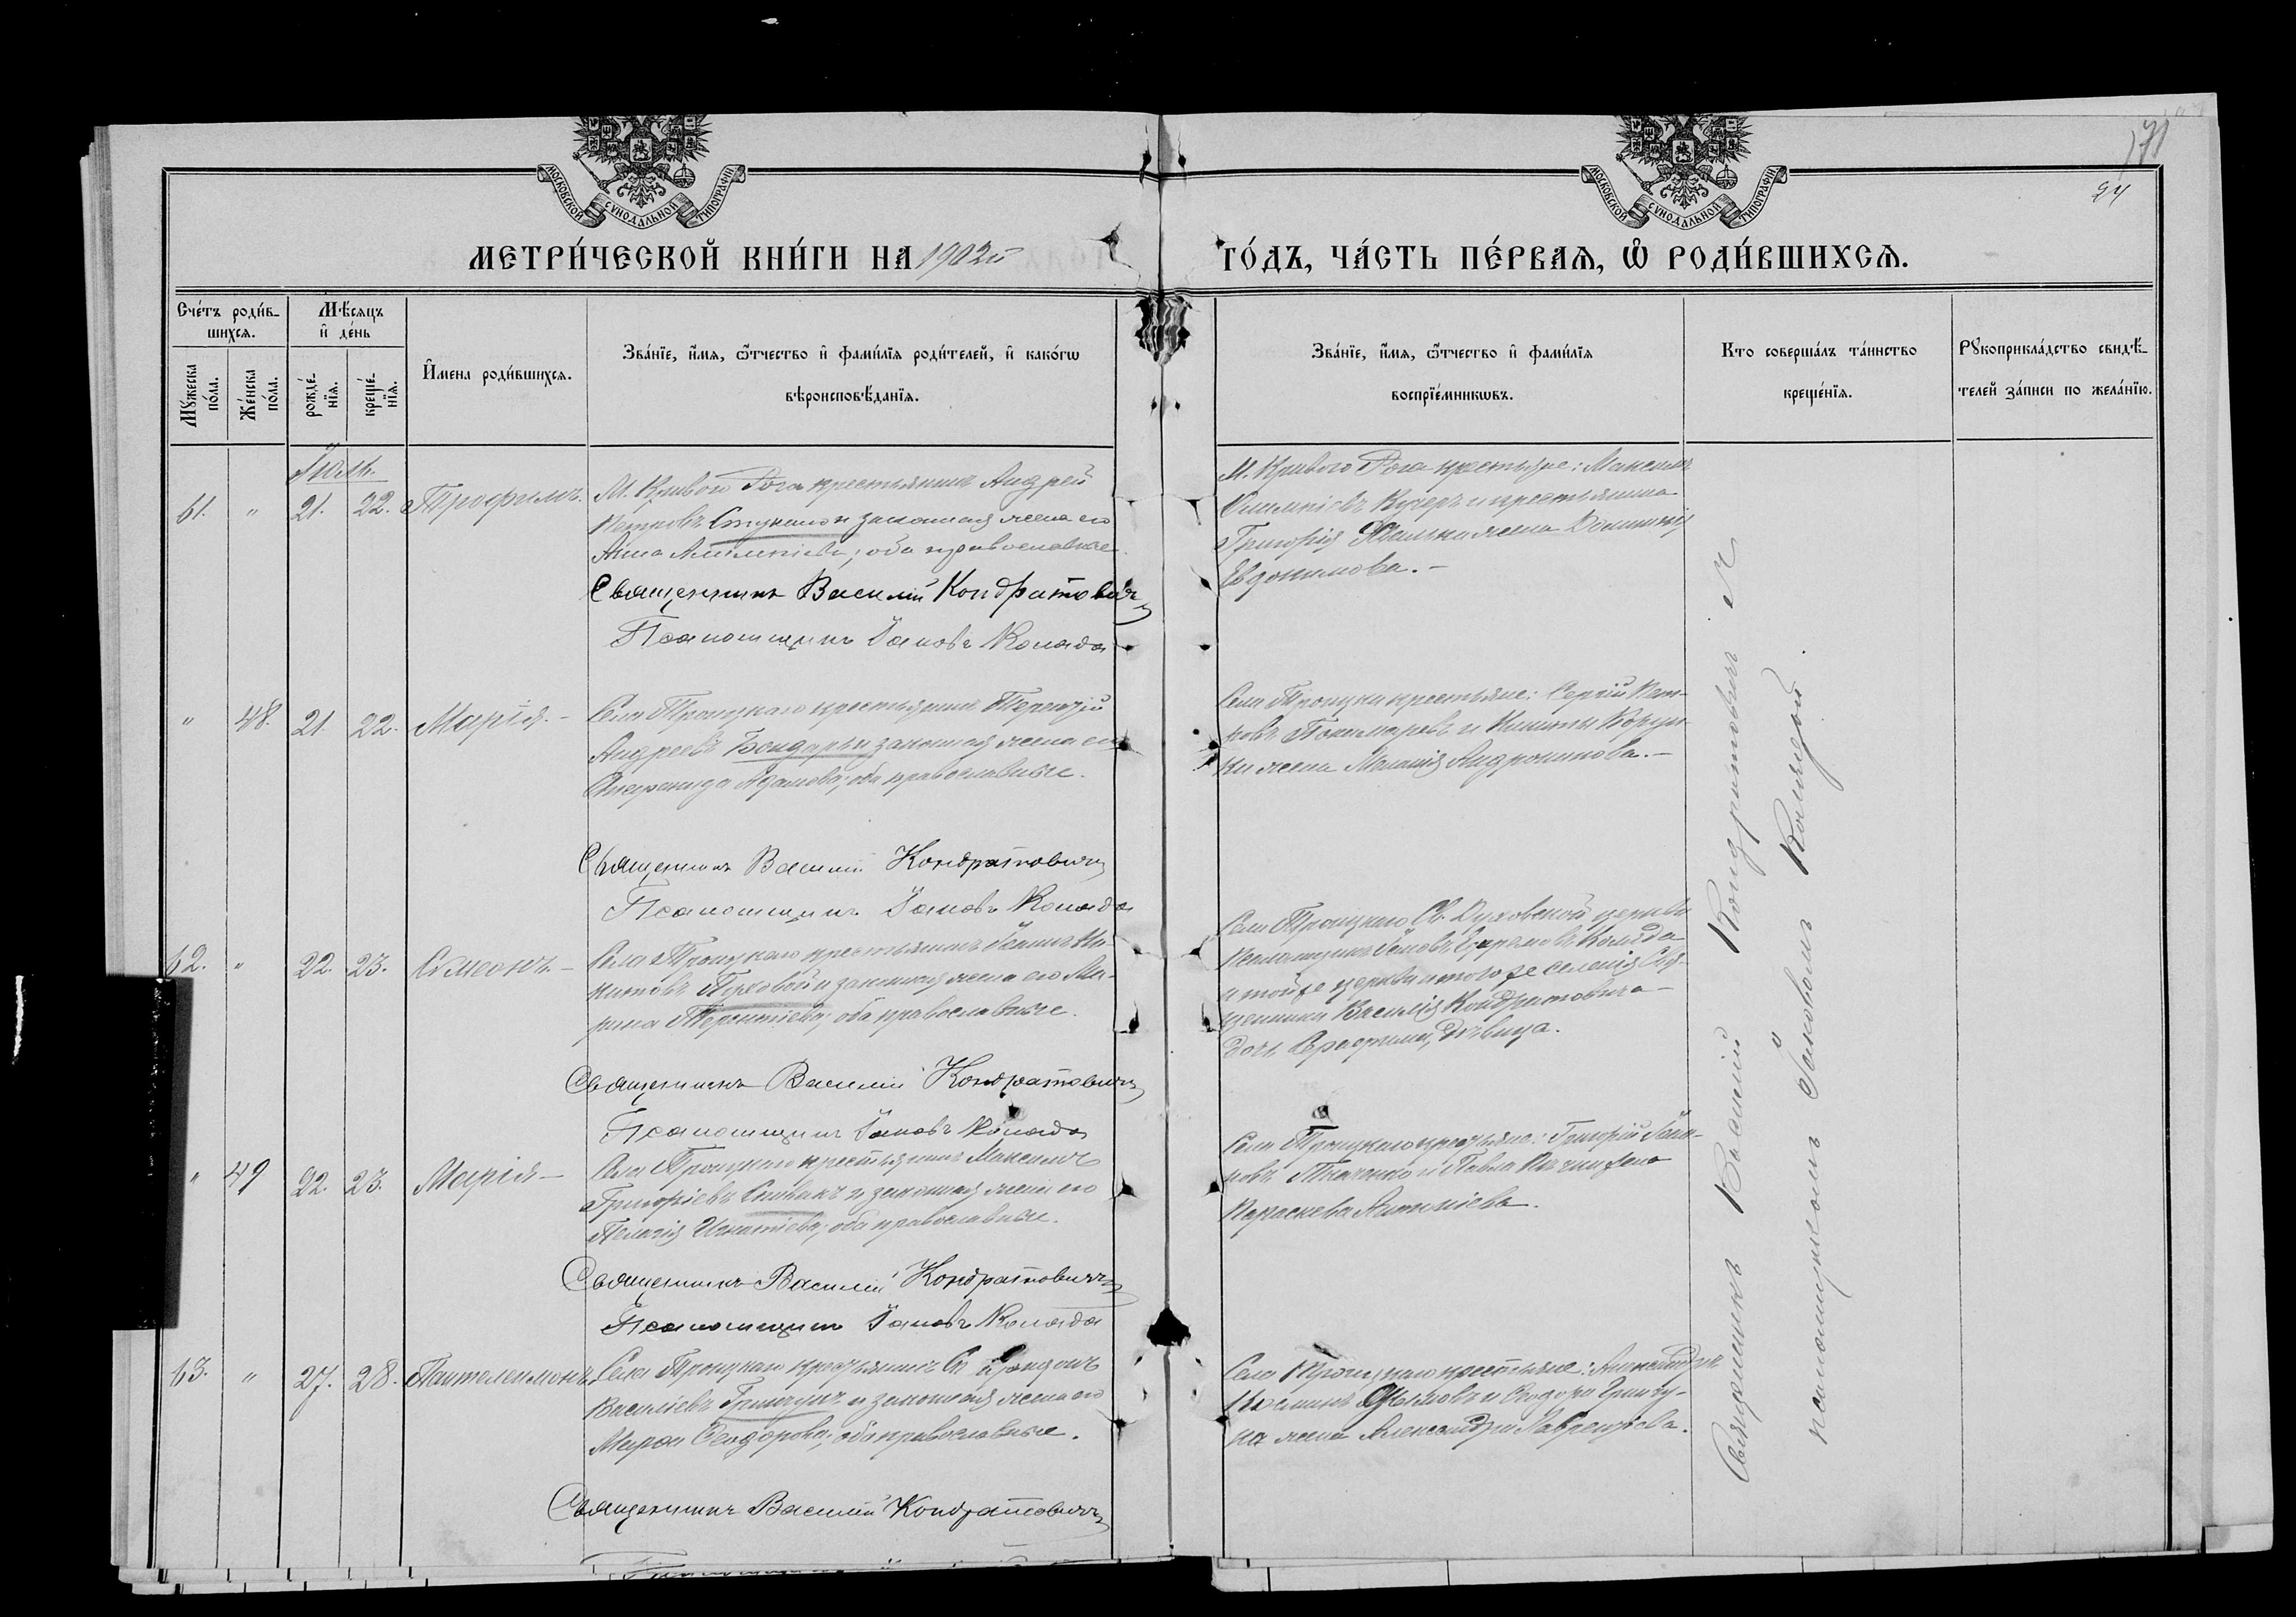 171
94
МОСКОВСКОЙ СѴНОДАЛЬНОЙ ТИПОГРАФІИ
МОСКОВСКОЙ СѴНОДАЛЬНОЙ ТИПОГРАФІИ
МЕТРИ́ЧЕСКОЙ КНИ́ГИ НА 1902й
ГО́ДЪ, ЧА́СТЬ ПЕ́РВАЯ, Ѡ РОДИ́ВШИХСЯ.
Сче́тъ роди́в-
шихся.
Мꙋ́жеска по́ла.
Же́нска по́ла.
Мѣ́сяцъ и де́нь
рожде́нїя.
креще́нїя.
И́мена роди́вшихся.
Зва́нїе, и́мя, ѻ́тчество и фами́лїя роди́телей, и како́гѡ
вѣроисповѣ́данїя.
Зва́нїе, и́мя, ѻ́тчество и фами́лїя
воспрїе́мникѡвъ.
Кто соверша́лъ та́инство
креще́нїя.
Рꙋкоприкла́дство свидѣ́-
телей за́писи по жела́нїю.
Іюль.
61. " 21. 22. Трофимъ.
М. Кривого Рога крестьянинъ Андрей
Петровъ и законная жена его
Анна; оба православные.
Священникъ Василій Кондратовичъ
Псаломщикъ Іаковъ Коляда
М. Кривого Рога крестьяне: Максимъ
Кучеръ и крестьянина
Григорія жена
Евдокимова.-
" 48. 21. 22. Марія.-
Села Троицкаго крестьянинъ Терентій
Андреевъ Бондарь и законная жена его
Адамова; оба православные.
Священникъ Василій Кондратовичъ
Псаломщикъ Іаковъ Коляда
Села Троицкаго крестьяне: Сергій Пет-
ровъ Пономаревъ и Никиты Корун-
жена Андроникова.-
62. " 22. 23. Симеонъ.-
Села Троицкаго крестьянинъ Ни-
китовъ Пуховой и законная жена его Ма-
рина Терентіева; оба православные.
Священникъ Василій Кондратовичъ
Псаломщикъ Іаковъ Коляда
Села Троицкаго Св. Духовской церкви
псаломщикъ Іаковъ Ефремовъ Коляда
и той же церкви и того же селенія Свя-
щенника Василія Кондратовича-
дочь Серафима, дѣвица.
" 49 22. 23. Марія-
Села Троицкаго крестьянинъ Максимъ
Григоріевъ Спивакъ и законная жена его
Пелагія Игнатіева; оба православные.
Священникъ Василій Кондратовичъ
Псаломщикъ Іаковъ Коляда
Села Троицкаго крестьяне: Григорій Іако-
вовъ Ткаченко и Павла жена
Параскева.
63. " 27. 28. Пантелеимонъ.
Села Троицкаго крестьянинъ Спиридонъ
Василіевъ Гринчунъ и законная жена его
Марфа Ѳеодорова; оба православные.
Священникъ Василій Кондратовичъ
Села Троицкаго крестьяне: Александръ
и Ѳеодора Гринчу-
на жена Александра Лаврентіева.
Священникъ Василій Кондратовичъ съ
псаломщикомъ Іаковомъ Колядой.